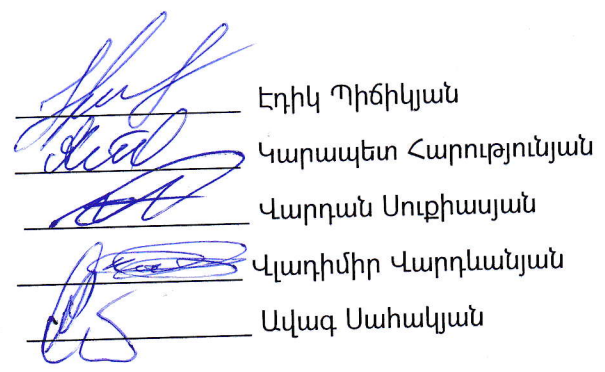 Էդիկ Պիճիկյան
Կարապետ Հարությունյան
Վարդան Սուքիասյան
Վլադիմիր Վարդևանյան
Ավագ Սահակյան